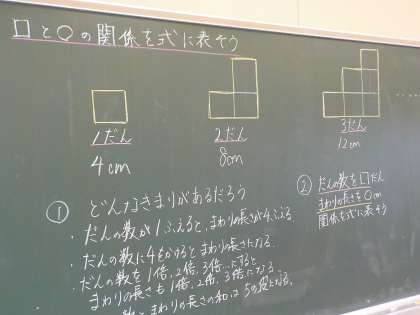 □と○の関係を式に表そう
1だん
4cm
2だん
8cm
3だん
12cm
① どんなきまりがあるだろう
・だんの数が1ふえると、まわりの長さが4ふえる。
・だんの数に4をかけるとまわりの長さになる。
・だんの数を1倍、2倍、3倍…にすると
まわりの長さも1倍、2倍、3倍になる。
数とまわりの長さの和は5の段になる。
② だんの数を□だん
まわりの長さを○cm
関係を式に表そう